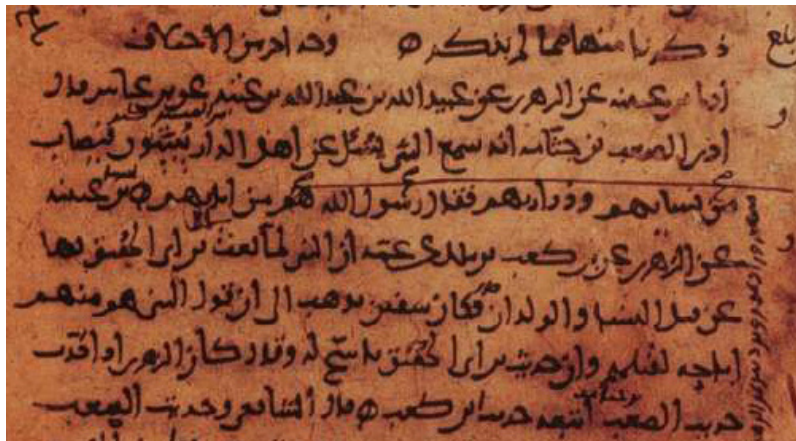 بلغ
ذكرنا منها مما لم يذكر ه وجه اخر من الاختلاف
اخبرنا بن عيينه عن الزهري عن عبيد الله بن عبد الله بن عتبه عن بن عباس قال
من المشركين
اخبرني الصعب بن جثامه انه سمع النبي يسئل عن اهل الدار يبيتون فيصاب
من نسايهم وذراريهم فقال رسول الله هم من ابايهم ه بن عيينه
عن الزهري عن بن كعب بن ملك عن عمه ان النبي لما بعث بن ابي الحقيق نهى
عن قتل النسا والولدان فكان سفين يذهب الى ان قول النبي هم منهم
اباحه لقتلهم وان حديث بن ابي الحقيق ناسخ له وقال كان الزهري اذا حدث
حديث الصعب اتبعه حديث بن كعب ه قال الشافعي وحديث الصعب